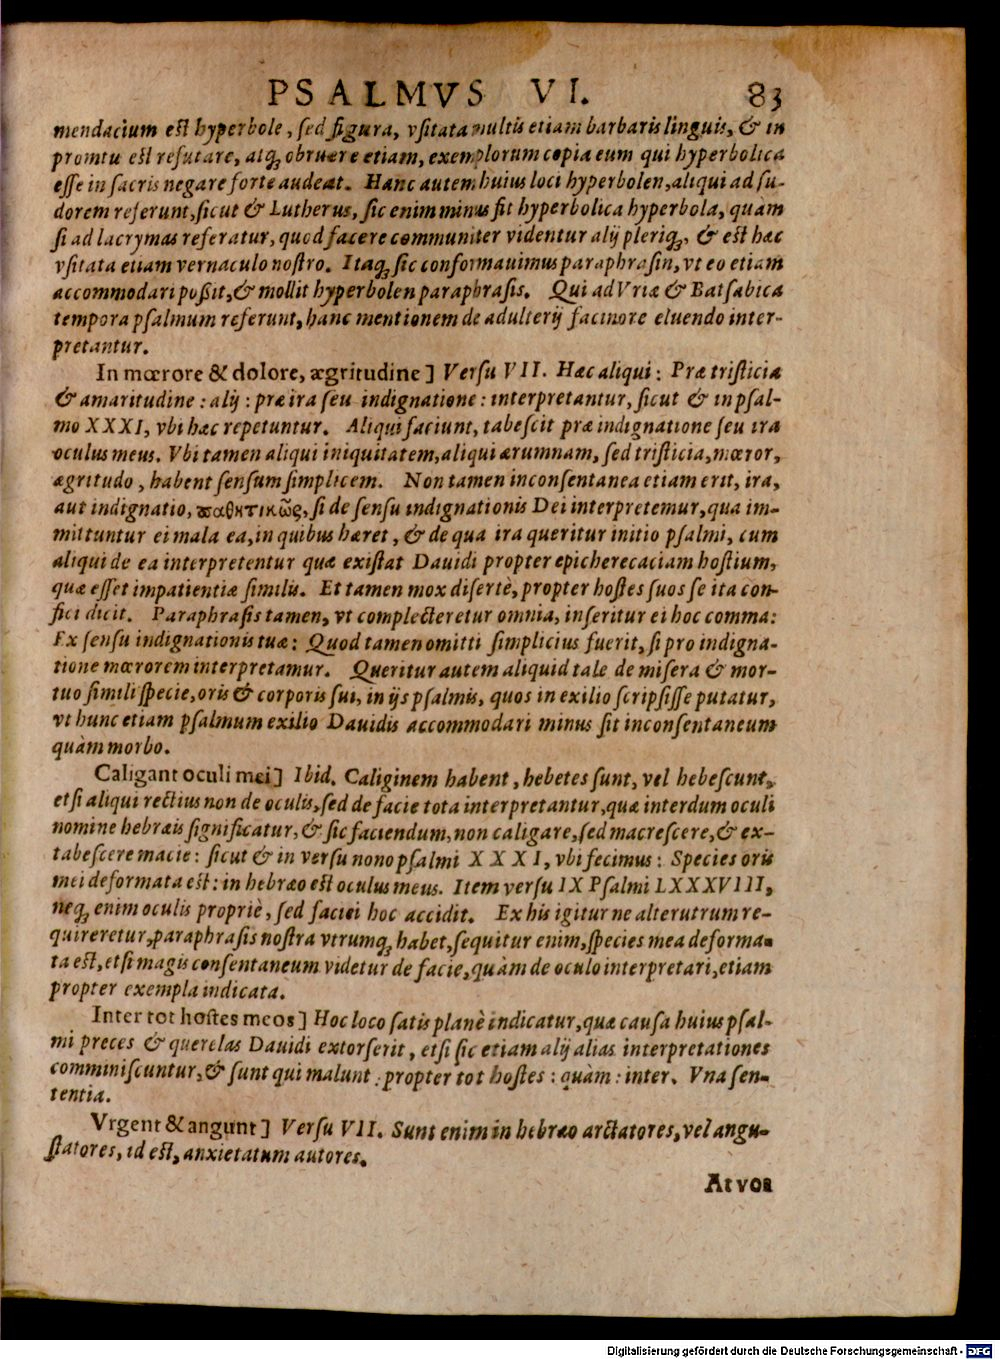 PSALMVS VI. 83
mendacium est hyperbole, sed figura, vsitata multis etiam barbaris linguis, & in
promtu est refutare, atq́ obruere etiam, exemplorum copia eum qui hyperbolica
esse in sacris negare forte audeat. Hanc autem huius loci hyperbolen, aliqui ad su-
dorem referunt, sicut & Lutherus, sic enim minus fit hyperbolica hyperbola, quàm
si ad lacrymas referatur, quod facere communiter videntur alij pleriq́, & est hæc
vsitata etiam vernaculo nostro. Itaq́ sic conformauimus paraphrasin, vt eo etiam
accommodari poßit, & mollit hyperbolen paraphrasis. Qui ad Vriæ & Batsabica
tempora psalmum referunt, hanc mentionem de adulterij facinore eluendo inter-
pretantur.
In mœrore & dolore, ægritudine] Versu VII. Hæc aliqui: Præ tristicia
& amaritudine: alij: præ ira seu indignatione: interpretantur, sicut & in psal-
mo XXXI, vbi hæc repetuntur. Aliqui faciunt, tabescit præ indignatione seu ira
oculus meus. Vbi tamen aliqui iniquitatem, aliqui ærumnam, sed tristicia, mœror,
ægritudo, habent sensum simplicem. Non tamen inconsentanea etiam erit, ira,
aut indignatio, ϖαθητικῶς, si de sensu indignationis Dei interpretemur, qua im-
mittuntur ei mala ea, in quibus hæret, & de qua ira queritur initio psalmi, cum
aliqui de ea interpretentur quæ existat Dauidi propter epicherecaciam hostium,
quæ esset impatientiæ similis. Et tamen mox disertè, propter hostes suos se ita con-
fici dicit. Paraphrasis tamen, vt complecteretur omnia, inseritur ei hoc comma:
Ex sensu indignationis tuæ: Quod tamen omitti simplicius fuerit, si pro indigna-
tione mœrorem interpretamur. Queritur autem aliquid tale de misera & mor-
tuo simili specie, oris & corporis sui, in ijs psalmis, quos in exilio scripsisse putatur,
vt hunc etiam psalmum exilio Dauidis accommodari minus sit inconsentaneum
quàm morbo.
Caligant oculi mei] Ibid. Caliginem habent, hebetes sunt, vel hebescunt,
etsi aliqui rectius non de oculis, sed de facie tota interpretantur, quæ interdum oculi
nomine hebræis significatur, & sic faciendum, non caligare, sed macrescere, & ex-
tabescere macie: sicut & in versu nono psalmi XXXI, vbi fecimus: Species oris
mei deformata est: in hebræo est oculus meus. Item versu IX Psalmi LXXXVIII,
neq́ enim oculis propriè, sed faciei hoc accidit. Ex his igitur ne alterutrum re-
quireretur, paraphrasis nostra vtrumq́ habet, sequitur enim, species mea deforma-
ta est, etsi magis consentaneum videtur de facie, quàm de oculo interpretari, etiam
propter exempla indicata.
Inter tot hostes meos] Hoc loco satis planè indicatur, quæ causa huius psal-
mi preces & querelas Dauidi extorserit, etsi sic etiam alij alias interpretationes
comminiscuntur, & sunt qui malunt: propter tot hostes: quàm: inter. Vna sen-
tentia.
Vrgent & angunt] Versu VII. Sunt enim in hebræo arctatores, vel angu-
statores, id est, anxietatum autores.
At vos
Digitalisierung gefördert durch die Deutsche Forschungsgemeinschaft - DFG